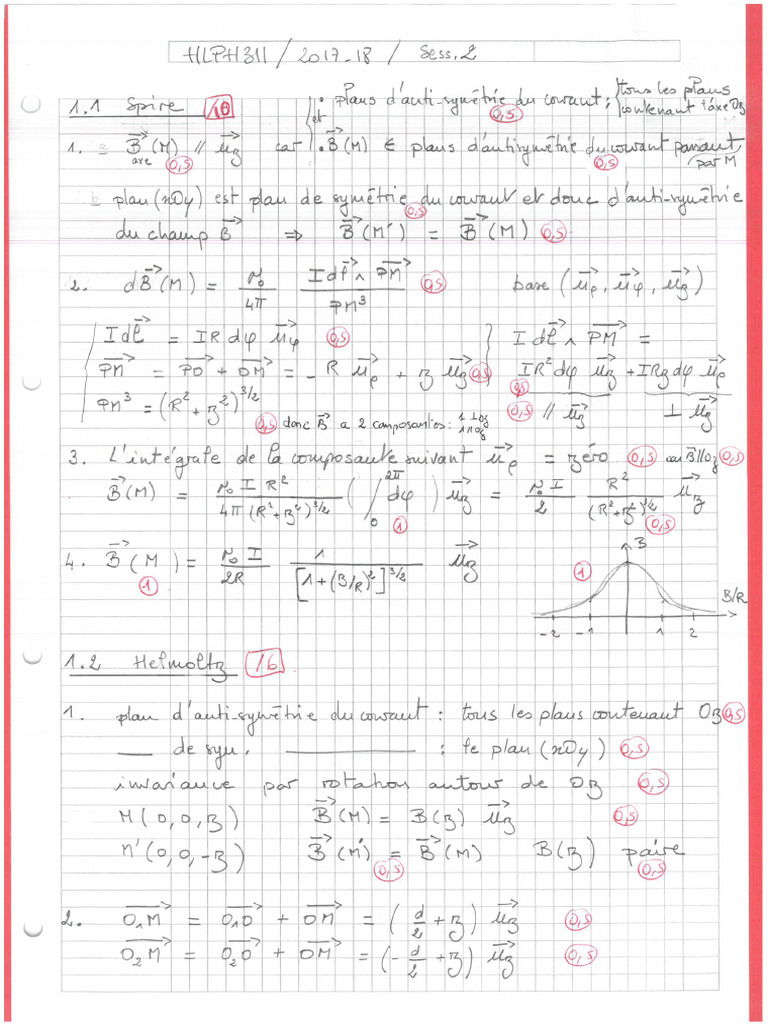 HLPH311 / 2017-18 / Sess. 2
1.1 Spire /10
• Plans d'anti-symétrie du courant : tous les plans contenant l'axe Oz 0,5
et
1. B⃗(M) // u⃗z car • B⃗(M) ∈ plans d'antisymétrie du courant passant par M
axe 0,5 0,5
plan (xOy) est plan de symétrie du courant et donc d'anti-symétrie
0,5
du champ B⃗ ⇒ B⃗(M') = B⃗(M) 0,5
2. dB⃗(M) = μ₀/4π (I dl⃗ ∧ PM⃗)/PM³ 0,5 base (u⃗ρ, u⃗φ, u⃗z)
I dl⃗ = IR dφ u⃗φ 0,5 I dl⃗ ∧ PM⃗ =
PM⃗ = PO⃗ + OM⃗ = - R u⃗ρ + z u⃗z 0,5 IR² dφ u⃗z + IRz dφ u⃗ρ
0,5
PM³ = (R² + z²)^3/2 0,5 // u⃗z ⊥ u⃗z
0,5 donc B⃗ a 2 composantes : 1 ⊥ Oz 1 // Oz
3. L'intégrale de la composante suivant u⃗ρ = zéro 0,5 car B⃗ // Oz 0,5
B⃗(M) = μ₀ I R² / 4π (R² + z²)^3/2 ( ∫₀^2π dφ ) u⃗z = μ₀ I / 2 R² / (R² + z²)^3/2 u⃗z
1 0,5
4. B⃗(M) = μ₀ I / 2R 1 / [1 + (z/R)²]^3/2 u⃗z
1 1 B z/R
-2 -1 1 2
1.2 Helmoltz /6
1. plan d'anti-symétrie du courant : tous les plans contenant Oz 0,5
—— de sym. —————— : le plan (xOy) 0,5
invariance par rotation autour de Oz 0,5
M(0,0,z) B⃗(M) = B(z) u⃗z 0,5
M'(0,0,-z) B⃗(M') = B⃗(M) B(z) paire
0,5 0,5
2. O₁M⃗ = O₁O⃗ + OM⃗ = (d/2 + z) u⃗z 0,5
O₂M⃗ = O₂O⃗ + OM⃗ = (-d/2 + z) u⃗z 0,5